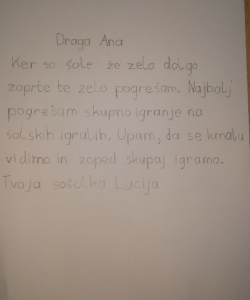 Draga Ana
Ker so šole že zelo dolgo
zaprte te zelo pogrešam. Najbolj
pogrešam skupno igranje na
šolskih igralih. Upam, da se kmalu
vidimo in zoped skupaj igramo.
Tvoja sošolka Lucija